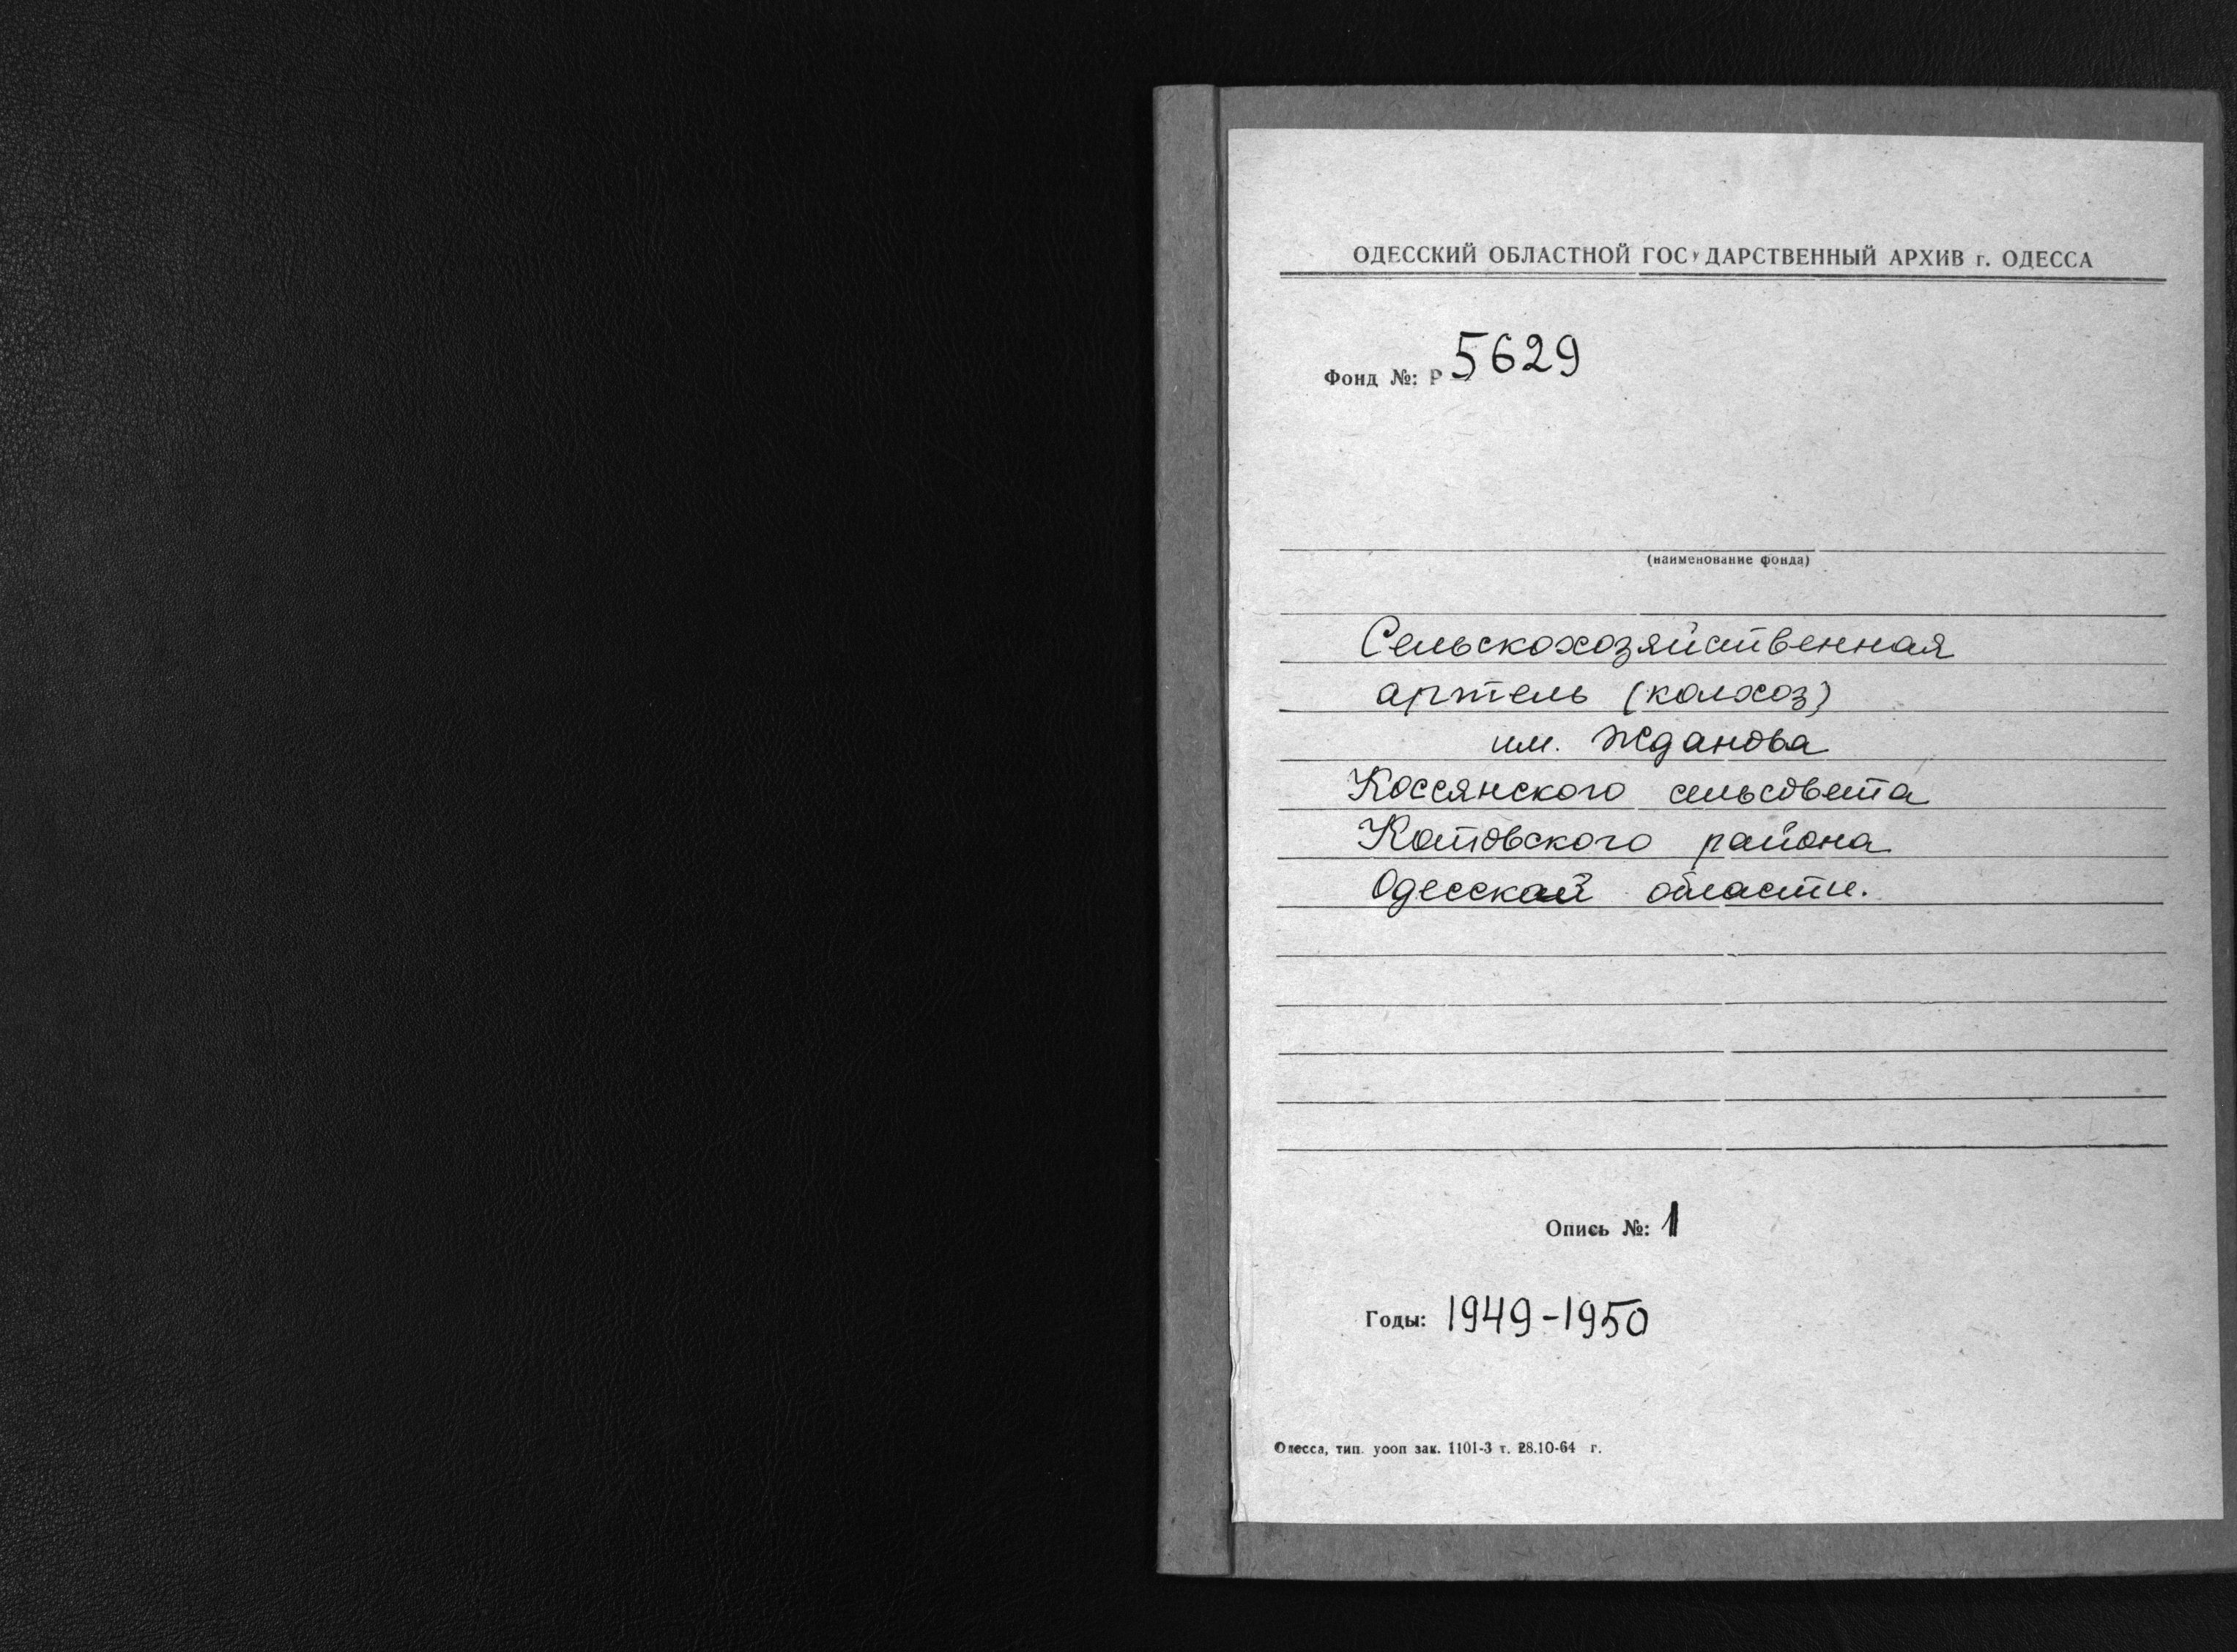 ОДЕССКИЙ ОБЛАСТНОЙ ГОСУДАРСТВЕННЫЙ АРХИВ г. ОДЕССА
Фонд №: Р 5629
(наименование фонда)
Сельскохозяйственная
артель (колхоз)
им. Жданова
Коссянского сельсовета
Котовского района
Одесской области.
Опись №: 1
Годы: 1949-1950
Одесса, тип. уооп зак. 1101-3 т. 28.10-64 г.